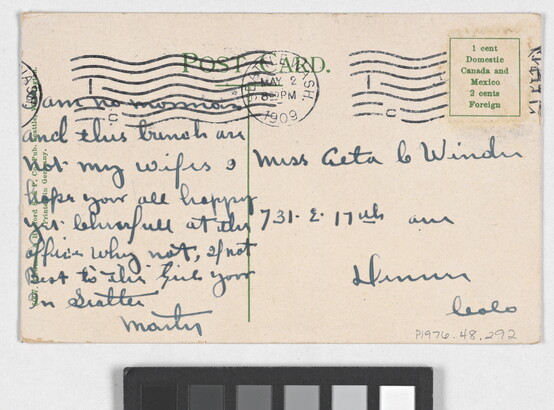 POST CARD.
MAY 2
8 PM
1909
WASH.
1 cent
Domestic
Canada and
Mexico
2 cents
Foreign
I am no mormon
and this bunch are
not my wifes I
hope your all happy
yet cheerfull at the
office why not, if not
Best to the girls your
in Seattle
Martin
Miss Aeta C Winder
731. E. 17th ave
Denver
Colo
P1976.48.292
Printed in Germany.